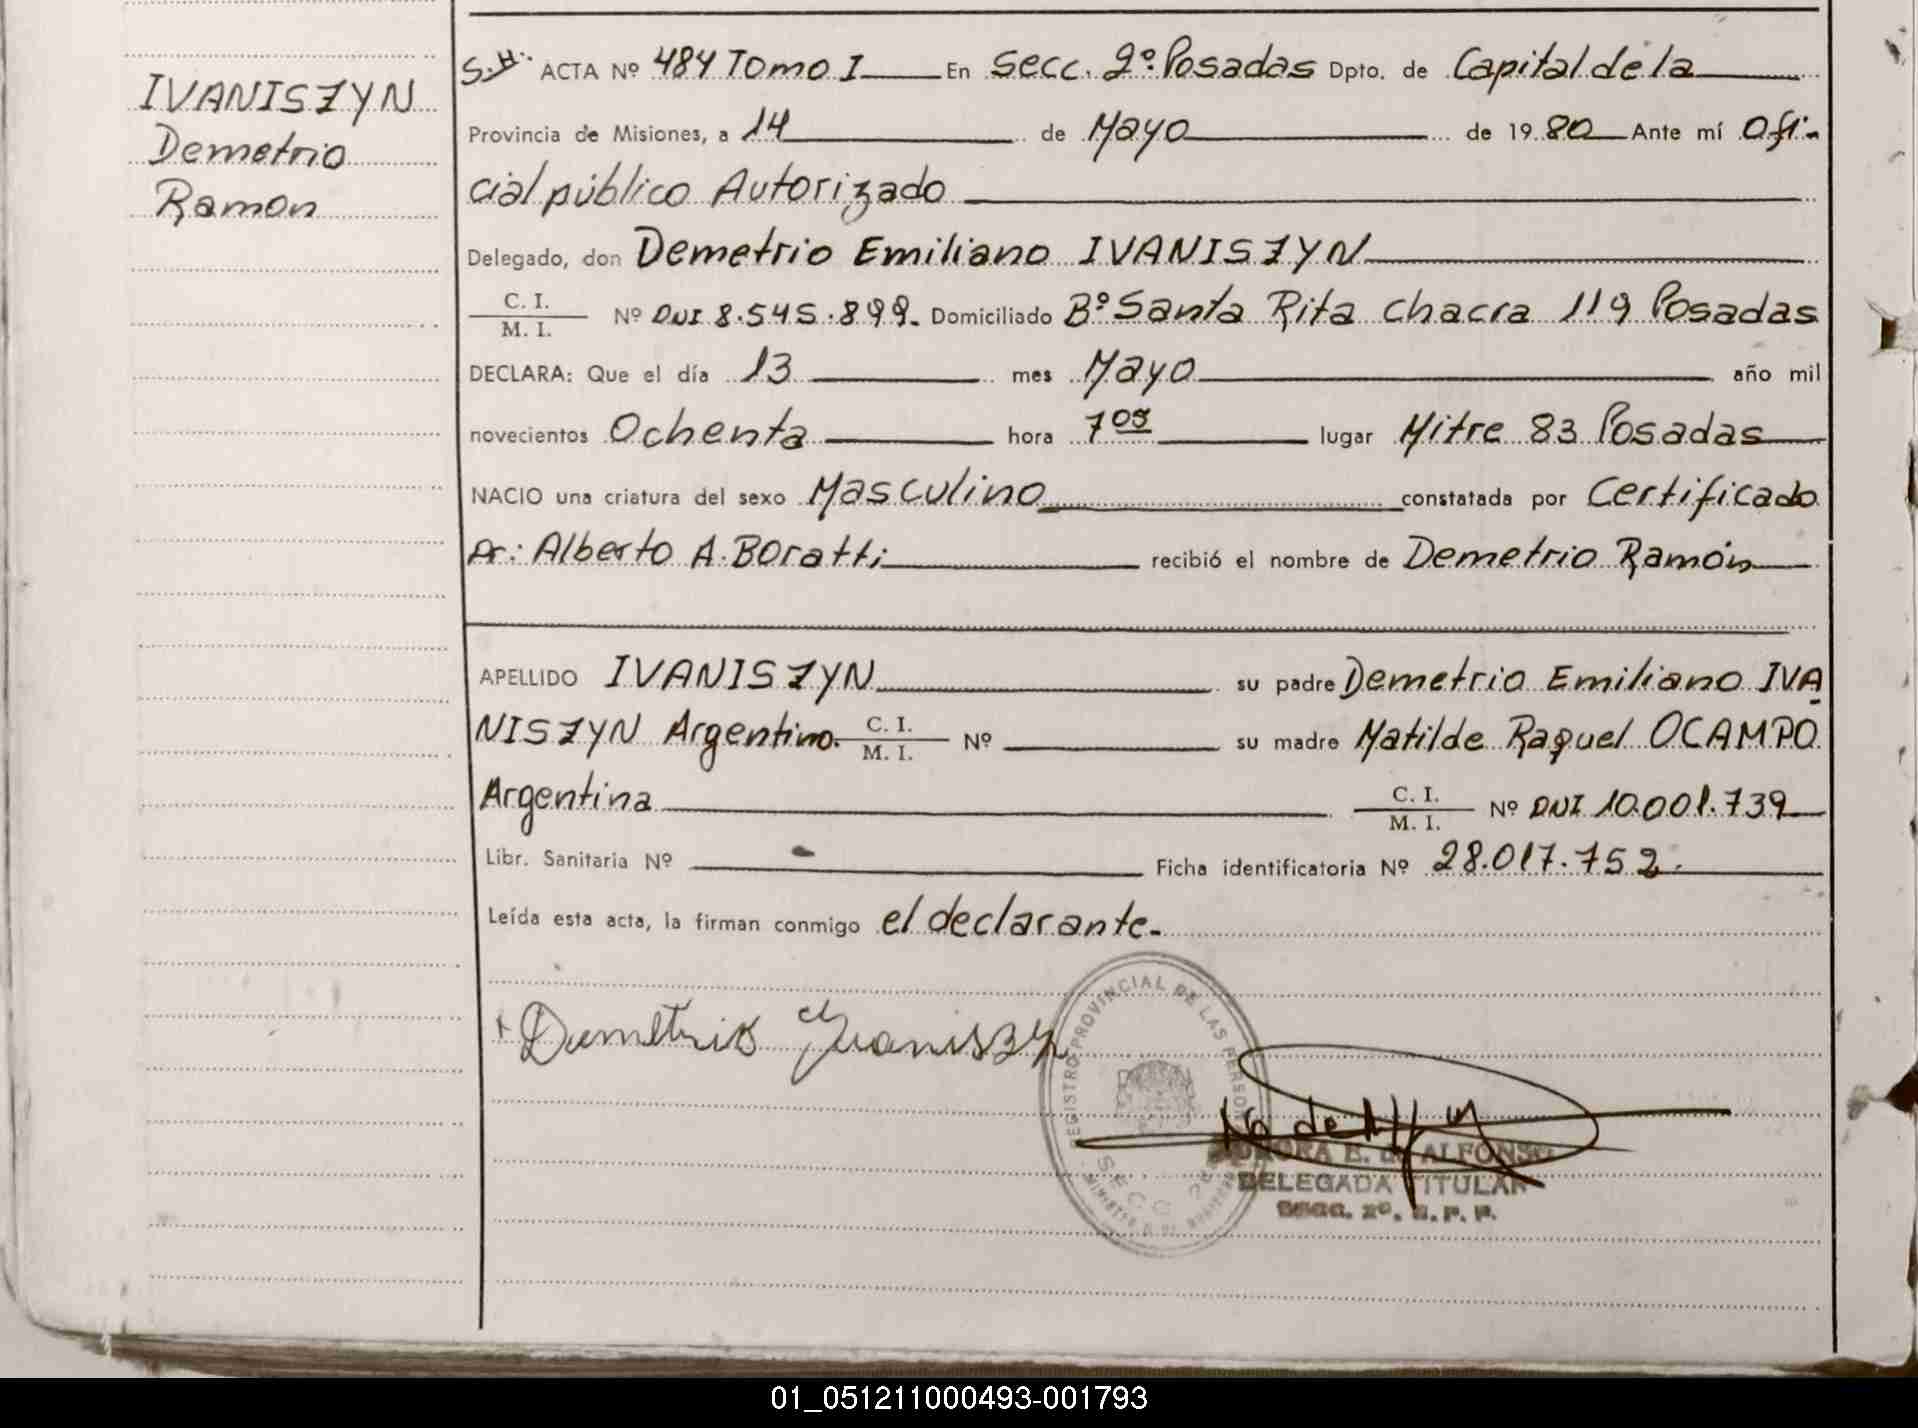 IVANISZYN
Demetrio
Ramon
S.H. ACTA Nº 484 Tomo I En Secc. 2º Posadas Dpto. de Capital de la
Provincia de Misiones, a 14 de Mayo de 1980 Ante mí Ofi-
cial público Autorizado
Delegado, don Demetrio Emiliano IVANISZYN
C. I.
M. I.
Nº DNI 8.545.899. Domiciliado Bº Santa Rita Chacra 119 Posadas
DECLARA: Que el día 13 mes Mayo año mil
novecientos Ochenta hora 7 05 lugar Mitre 83 Posadas
NACIO una criatura del sexo Masculino constatada por Certificado
Dr: Alberto A. Boratti recibió el nombre de Demetrio Ramón
APELLIDO IVANISZYN su padre Demetrio Emiliano IVA
NISZYN Argentino. C. I. M. I. Nº su madre Matilde Raquel OCAMPO
Argentina C. I. M. I. Nº DNI 10.001.739
Libr. Sanitaria Nº Ficha identificatoria Nº 28.017.752.
Leída esta acta, la firman conmigo el declarante.
Demetrio Ivaniszyn
REGISTRO PROVINCIAL DE LAS PERSONAS
SECC. 2da
E. de ALFONSO
DELEGADA TITULAR
SECC. 2º. R. P. P.
01_051211000493-001793